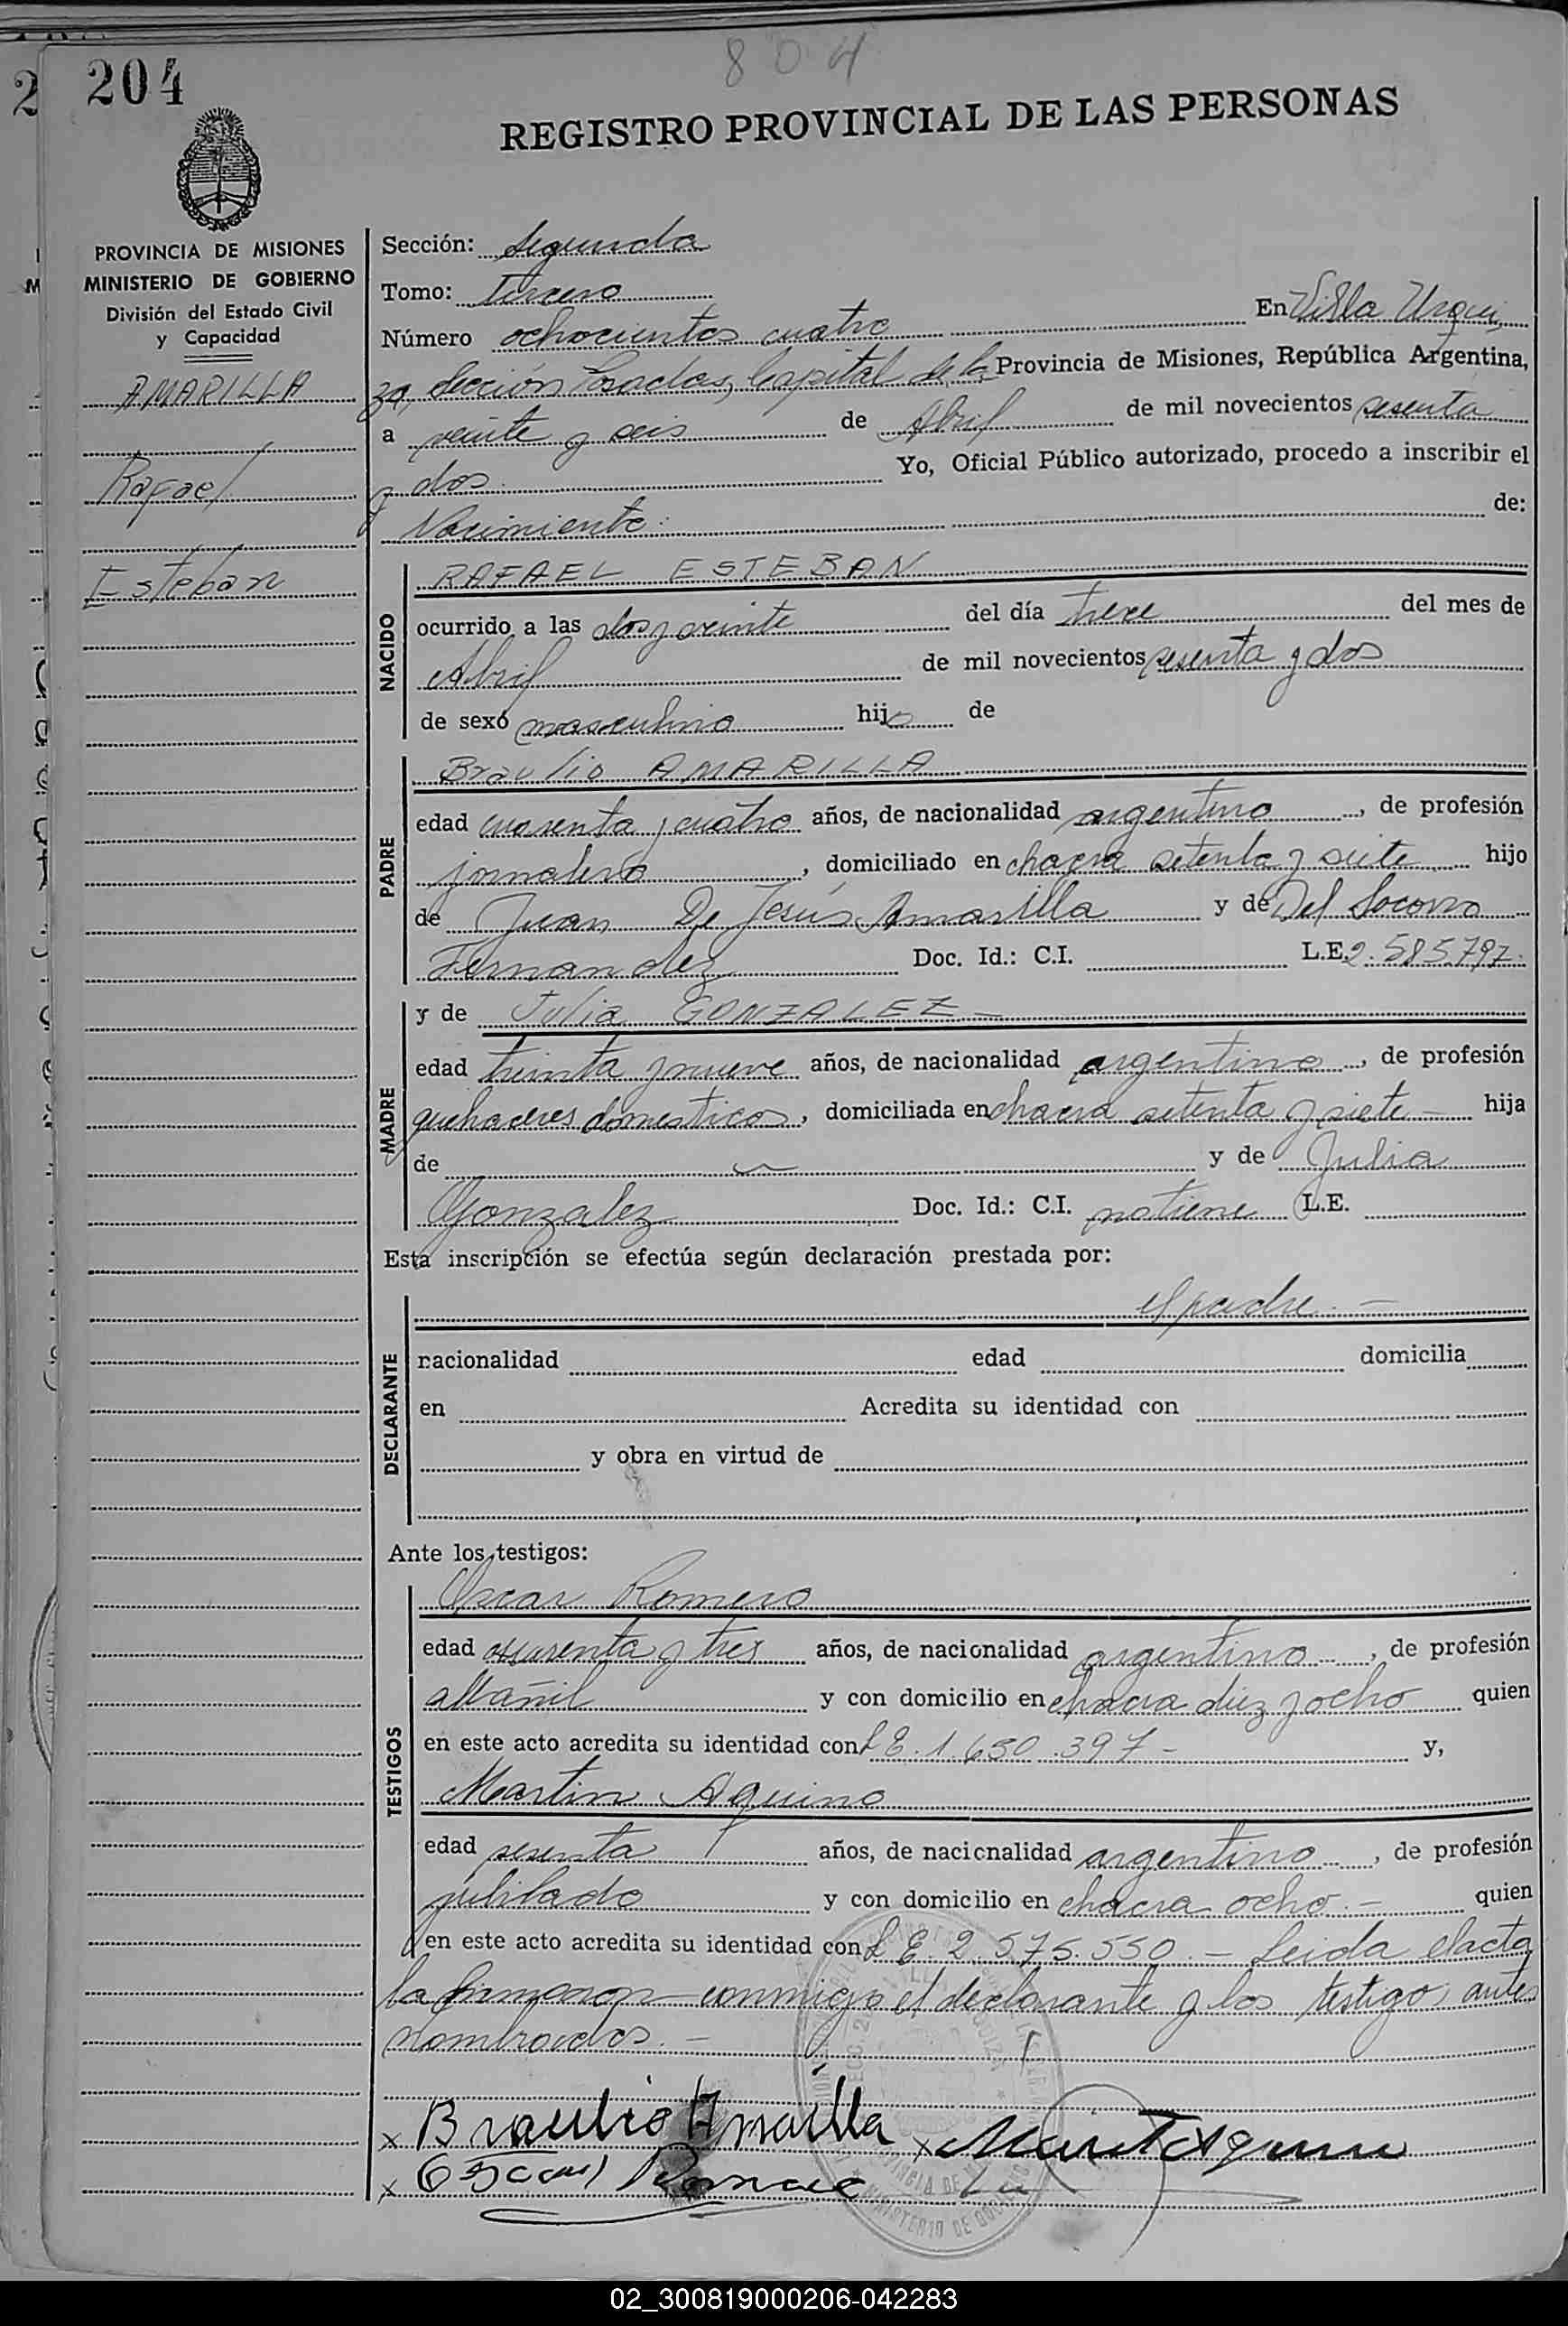 804
204
REGISTRO PROVINCIAL DE LAS PERSONAS
PROVINCIA DE MISIONES
MINISTERIO DE GOBIERNO
División del Estado Civil
y Capacidad
AMARILLA
Rafael
Esteban
Sección: Segunda
Tomo: Tercero
Número ochocientos cuatro En Villa Urqui
za, Sección Posadas, Capital de la Provincia de Misiones, República Argentina,
a veinte y seis de Abril de mil novecientos sesenta
y dos Yo, Oficial Público autorizado, procedo a inscribir el
Nacimiento: de:
NACIDO
RAFAEL ESTEBAN
ocurrido a las dos y veinte del día trece del mes de
Abril de mil novecientos sesenta y dos
de sexo masculino hijo de
PADRE
Braulio AMARILLA
edad cuarenta y cuatro años, de nacionalidad argentino, de profesión
jornalero, domiciliado en chacra setenta y siete hijo
de Juan De Jesús Amarilla y de Del Socorro
Fernandez Doc. Id.: C.I. L.E. 2.585.797.
MADRE
y de Julia GONZALEZ -
edad treinta y nueve años, de nacionalidad argentina, de profesión
quehaceres domesticos, domiciliada en chacra setenta y siete - hija
de y de Julia
Gonzalez Doc. Id.: C.I. no tiene L.E.
Esta inscripción se efectúa según declaración prestada por:
DECLARANTE
el padre. -
nacionalidad edad domicilia
en Acredita su identidad con
y obra en virtud de
Ante los testigos:
TESTIGOS
Oscar Romero
edad cuarenta y tres años, de nacionalidad argentino, de profesión
albañil y con domicilio en chacra diez y ocho quien
en este acto acredita su identidad con L.E. 1.650.397 - y,
Martin Aquino
edad sesenta años, de nacionalidad argentino, de profesión
jubilado y con domicilio en chacra ocho. - quien
en este acto acredita su identidad con L.E. 2.575.550. - Leida el acta
la firmaron conmigo el declarante y los testigos antes
nombrados. -
x Braulio Amarilla x Mart Aquino
x Oscar Romero
02_300819000206-042283